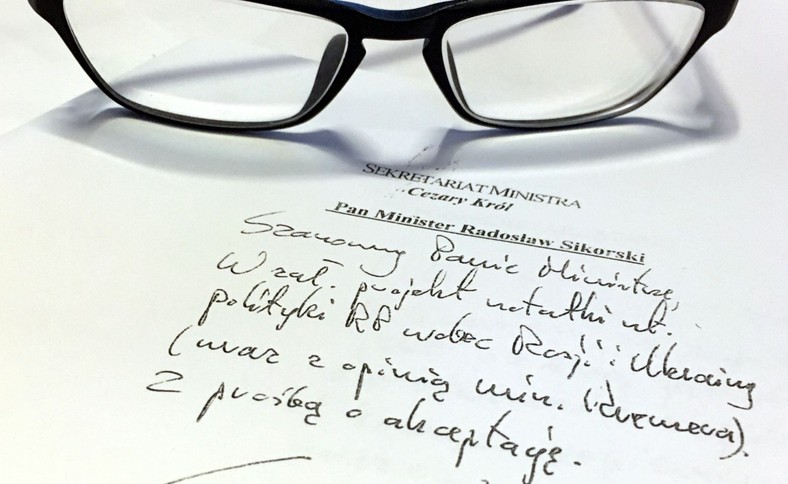 SEKRETARIAT MINISTRA
Cezary Król
Pan Minister Radosław Sikorski
Szanowny Panie Ministrze,
W zał. projekt notatki nt.
polityki RP wobec Rosji i Ukrainy
(wraz z opinią min.
Z prośbą o akceptację.